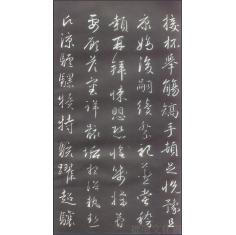 接杯舉觴矯手頓足悅豫且
康嫡後嗣續祭祀蒸嘗稽
顙再拜悚懼恐惶牋牒簡
要顧答審詳骸垢想浴執熱
願涼驢騾犢特駭躍超驤